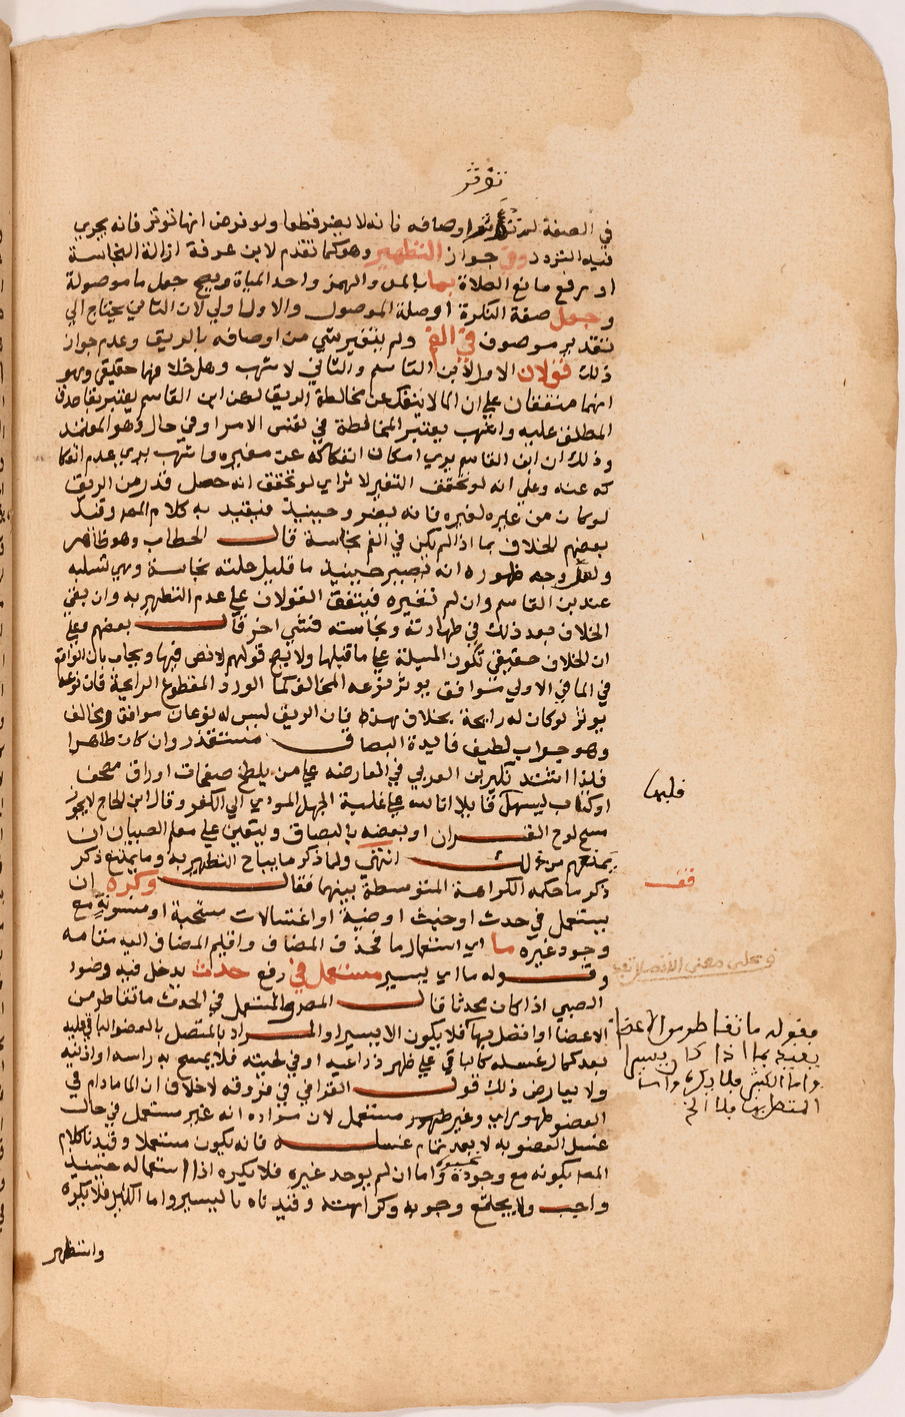 تؤثر
في الصفة لم تؤثر اوصافه فانه لا يضر قطعا ولو فرض انها تؤثر فانه يجري
فيه التردد وفي جواز التطهير وهو كما تقدم لابن عرفة ازالة النجاسة
او رفع مانع الصلاة بما بالمد والهمز واحد المياة ويصح جعل ما موصولة
وجعل صفة النكرة اوصلة الموصول والاول اولي لان الثاني يحتاج الي
تقدير موصوف في الفم ولم يتغير شي من اوصافه بالريق وعدم جواز
ذلك قولان الاول لابن القاسم والثاني لاشهب وهل خلافهما حقيقي وهو
انهما متفقان علي ان الما لا ينفك عن مخالطة الريق لكن ابن القاسم يعتبر بقا صدق
المطلق عليه واشهب يعتبر المخالطة في نفس الامر او في حال وهو المعتمد
وذلك ان ابن القاسم يري امكان انفكاكه عن مغيره واشهب يري عدم انفكا
كه عنه وعلي انه لو تحقق التغير لاثر اي لو تحقق انه حصل قدر من الريق
لو كان من غيره لغيره فانه يضر وحينيذ فيقيد به كلام المص وقيد
بعضهم الخلاف بما اذا لم يكن في الفم نجاسة قال الحطاب وهو ظاهر
ولعل وجه ظهوره انه تصير حينيذ ما قليل حلته نجاسة وهي تسلبه
عند بن القاسم وان لم تغيره فيتفق القولان علي عدم التطهير به وان بقي
الخلاف بعد ذلك في طهارته ونجاسته فشي اخر قال بعضهم وعلي
ان الخلاف حقيقي تكون المسيلة علي ما قبلها ولا يصح قولهم لا نص فيها ويجاب بان الواقع
في الما في الاولي موافق يوثر نزعه المخالف كما الورد المقطوع الرايحة فان نوعه
يوثر لو كان له رايحة بخلاف هذه فان الريق ليس له نوعان موافق ومخالف
وهو جواب لطيف فايدة البصاق مستقذر وان كان طاهرا
فلذا اشتد نكير بن العربي في العارضه علي من يلطخ صفحات اوراق مصحف
او كتاب ليسهل قايلا انا لله علي غلبة الجهل المودي الي الكفر وقال ابن الحاج لا يجوز
مسح لوح القران او بعضه بالبصاق ويتعين علي معلم الصبيان ان
يمنعهم من ذلك انتهي ولما ذكر ما يباح التطهير به وما يمنع ذكر
ذكر ما حكمه الكراهة المتوسطة بينهما فقال وكره ان
يستعمل في حدث او خبث اوضية او اغتسالات مستحبة او مسنونة مع
وجود غيره ما اي استعمال ما فحذف المضاف واقيم المضاف اليه مقامه
وقوله ما اي يسير مستعمل في رفع حدث يدخل فيه وضوء
الصبي اذا كان محدثا قال المص والمستعمل في الحدث ما تقاطر من
الاعضا او اتصل بها فلا يكون الا يسيرا والمراد بالمتصل بالعضو الباقي عليه
بعد كمال غسله كالباقي علي ظهر ذراعيه او في لحيته فلا يمسح به راسه او اذنيه
ولا يعارض ذلك قول القرافي في فروقه لا خلاف ان الما مادام في
العضو طهور اي وغير مستعمل لان مراده انه غير مستعمل في حال
غسل العضو به لا بعد تمام غسله فانه يكون مستعملا وقيدنا كلام
المص بكونه مع وجود غيره واما ان لم يوجد غيره فلا يكره اذا استعماله حينيذ
واجب ولا يجتمع وجوبه وكراهته وقيدناه باليسير واما الكثير فلا يكره
واستظهر
فليها
قف
فقوله ما تقاطر من الاعضا
يقيد بما اذا كان يسيرا
واما الكثير فلا يكره واما
المتصل بها فلذا الخ